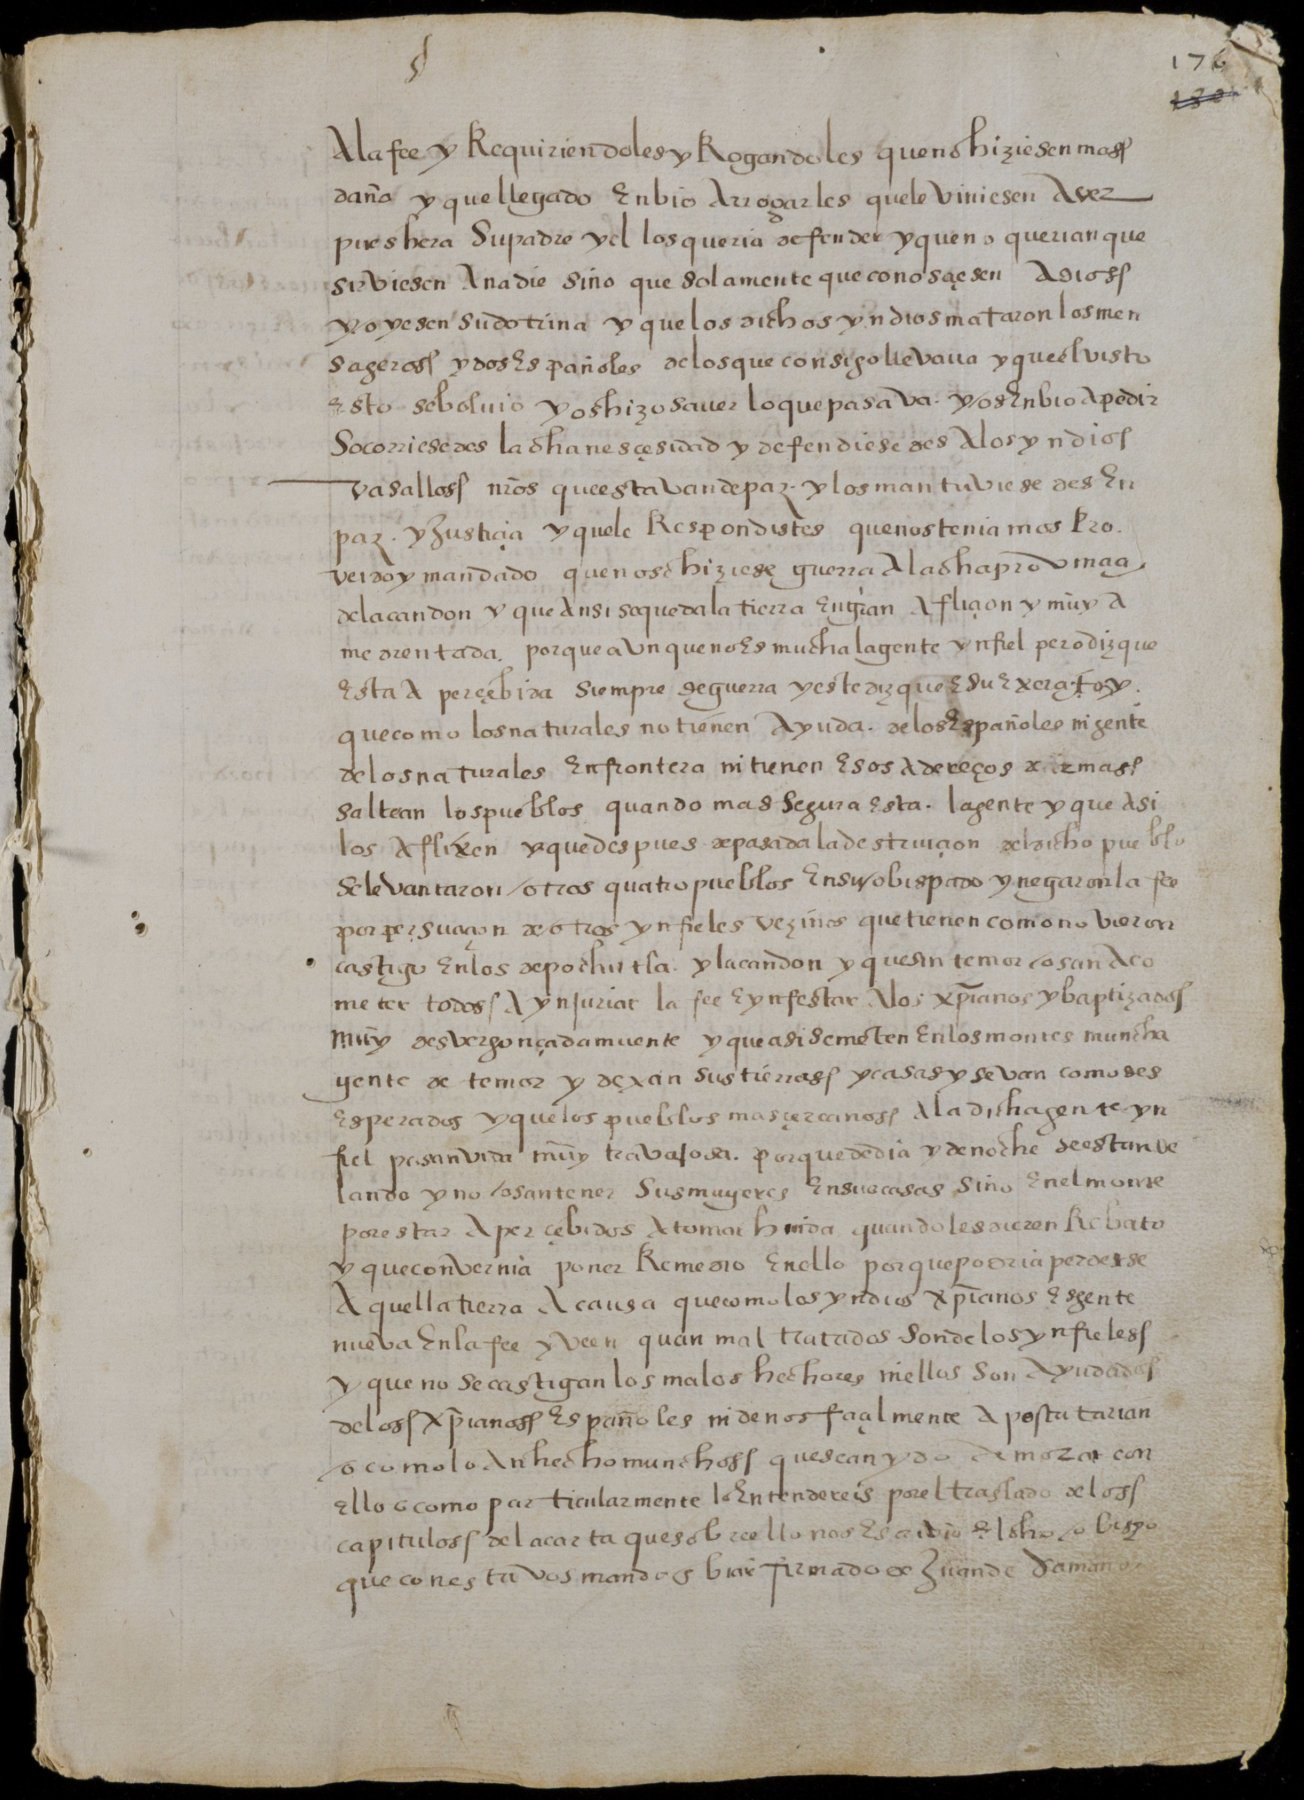 176
180
A la fee y Requiriendoles y Rogandoles que no hiziesen mas
daño y que llegado Enbio A rrogarles que le viniesen A ver
pues hera Su padre y el los queria defender y que no querian que
sirviesen A nadie sino que solamente que conosçiesen A dios
y oyesen su dotrina y que los dichos yndios mataron los men
sageros y dos Españoles de los que consigo llevaua y que el visto
Esto se bolvio y os hizo saver lo que pasava. y os Enbio A pedir
Socorriesedes la dha nesçesidad y defendiesedes A los yndios
vasallos nros que estavan de paz. y los mantuviesedes En
paz. y Justiçia y que le Respondistes que nos teniamos Pro
veido y mandado que no se hiziese guerra A la dha provinçia
de lacandon y que Ansi se queda la tierra En gran Afliçion y muy A
medrentada. porque avnque no Es mucha la gente ynfiel pero diz que
Esta A perçebida siempre de guerra y este diz que Es su Exerçiçio y.
que como los naturales no tienen Ayuda. de los Españoles ni gente
de los naturales En frontera ni tienen Esos Adereços de armas
saltean los pueblos quando mas Segura Esta. la gente y que Asi
los Aflixen y que despues de pasada la destruiçion del dicho pueblo
se levantaron otros quatro pueblos En su obispado y negaron la fee
por persuaçion de otros ynfieles vezinos que tienen como no vieron
castigo En los de pochutla. y lacandon y que sin temor osan Aco
meter todos A ynjuriar la fee E ynfestar A los xpianos y baptizados
muy desvergonçadamuente y que asi se meten En los montes muncha
gente de temor y dexan sus tierras y casas y se van como des
esperados y que los pueblos mas çercanos A la dicha gente yn
fiel pasan vida muy travajosa. porque de dia y de noche se estan ve
lando y no osan tener Sus mugeres En sus casas sino En el monte
por estar A perçebidos A tomar huida quando les dieren Rebato
y que convernia poner Remedio En ello porque podria perderse
A quella tierra A causa que como los yndios xpianos Es gente
nueva En la fee y veen quan mal tratados son de los ynfieles
y que no se castigan los malos hechores ni ellos son Ayudados
de los xpianos Españoles ni de nos façilmente A postatarian
o como lo An hecho munchos que se an ydo A morar con
ello o como particularmente lo Entendereis por el traslado de los
capitulos de la carta que sobre ello nos Escrivio El dho obispo
que con esta vos mando Enbiar firmado de Juan de Samano